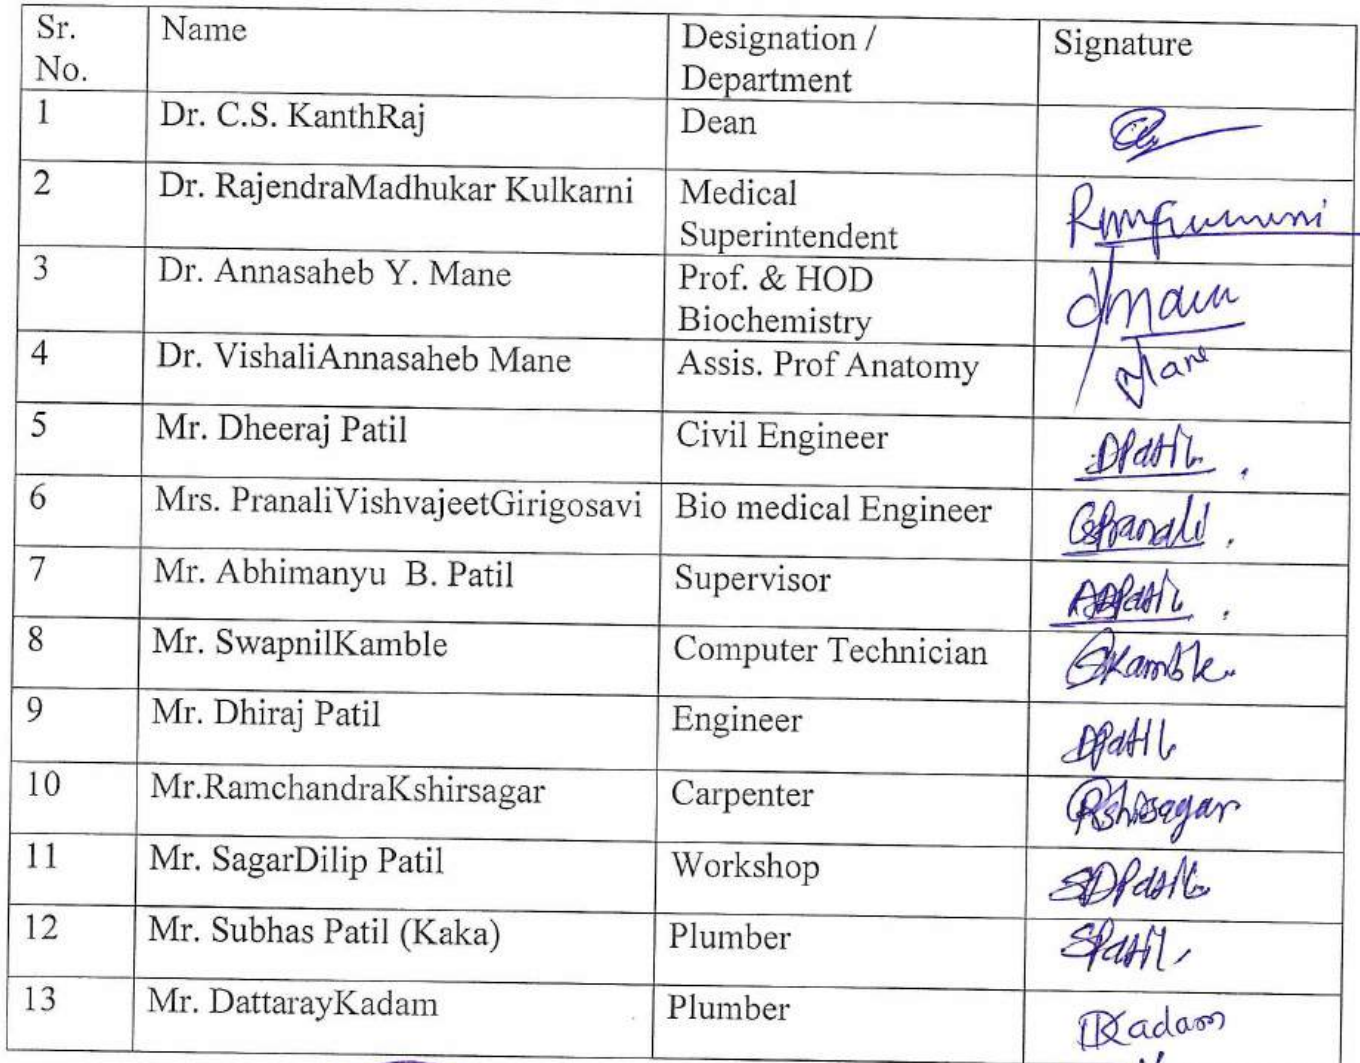 Sr. No. Name Designation / Department Signature
1 Dr. C.S. KanthRaj Dean
2 Dr. RajendraMadhukar Kulkarni Medical Superintendent
3 Dr. Annasaheb Y. Mane Prof. & HOD Biochemistry
4 Dr. VishaliAnnasaheb Mane Assis. Prof Anatomy Mane
5 Mr. Dheeraj Patil Civil Engineer DPatil
6 Mrs. PranaliVishvajeetGirigosavi Bio medical Engineer GPranali
7 Mr. Abhimanyu B. Patil Supervisor ABPatil
8 Mr. SwapnilKamble Computer Technician SKamble
9 Mr. Dhiraj Patil Engineer DPatil
10 Mr.RamchandraKshirsagar Carpenter
11 Mr. SagarDilip Patil Workshop SDPatil
12 Mr. Subhas Patil (Kaka) Plumber SPatil
13 Mr. DattarayKadam Plumber DKadam